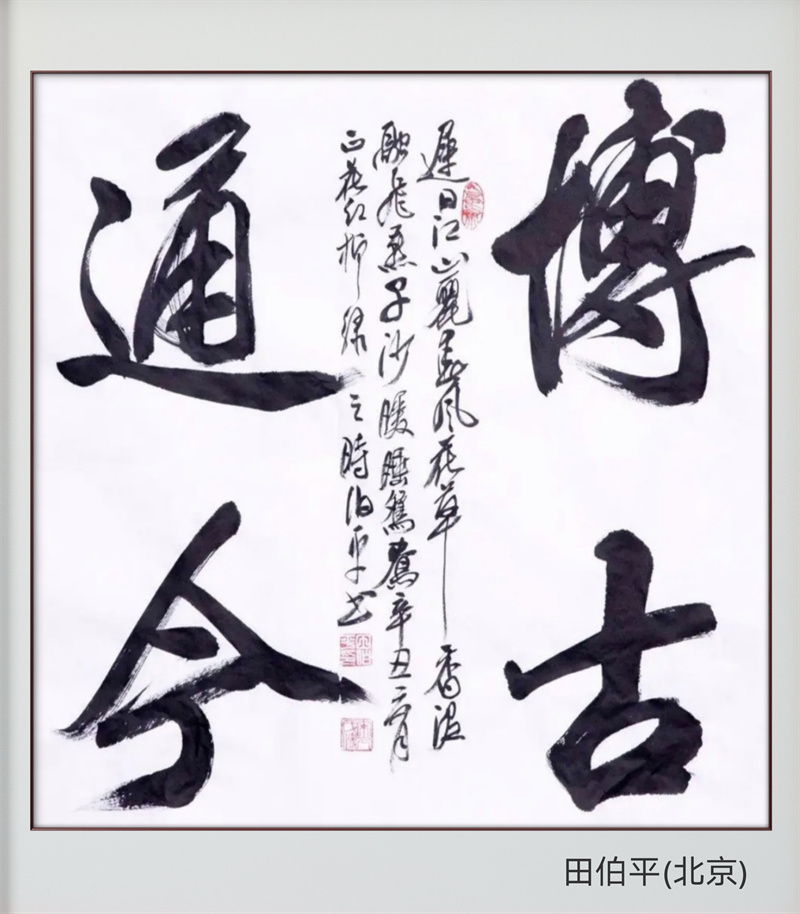 博古
遲日江山麗春風花草香泥
融飛燕子沙暖睡鴛鴦辛丑二月
正花红柳绿之時伯平书
通今
田伯平(北京)